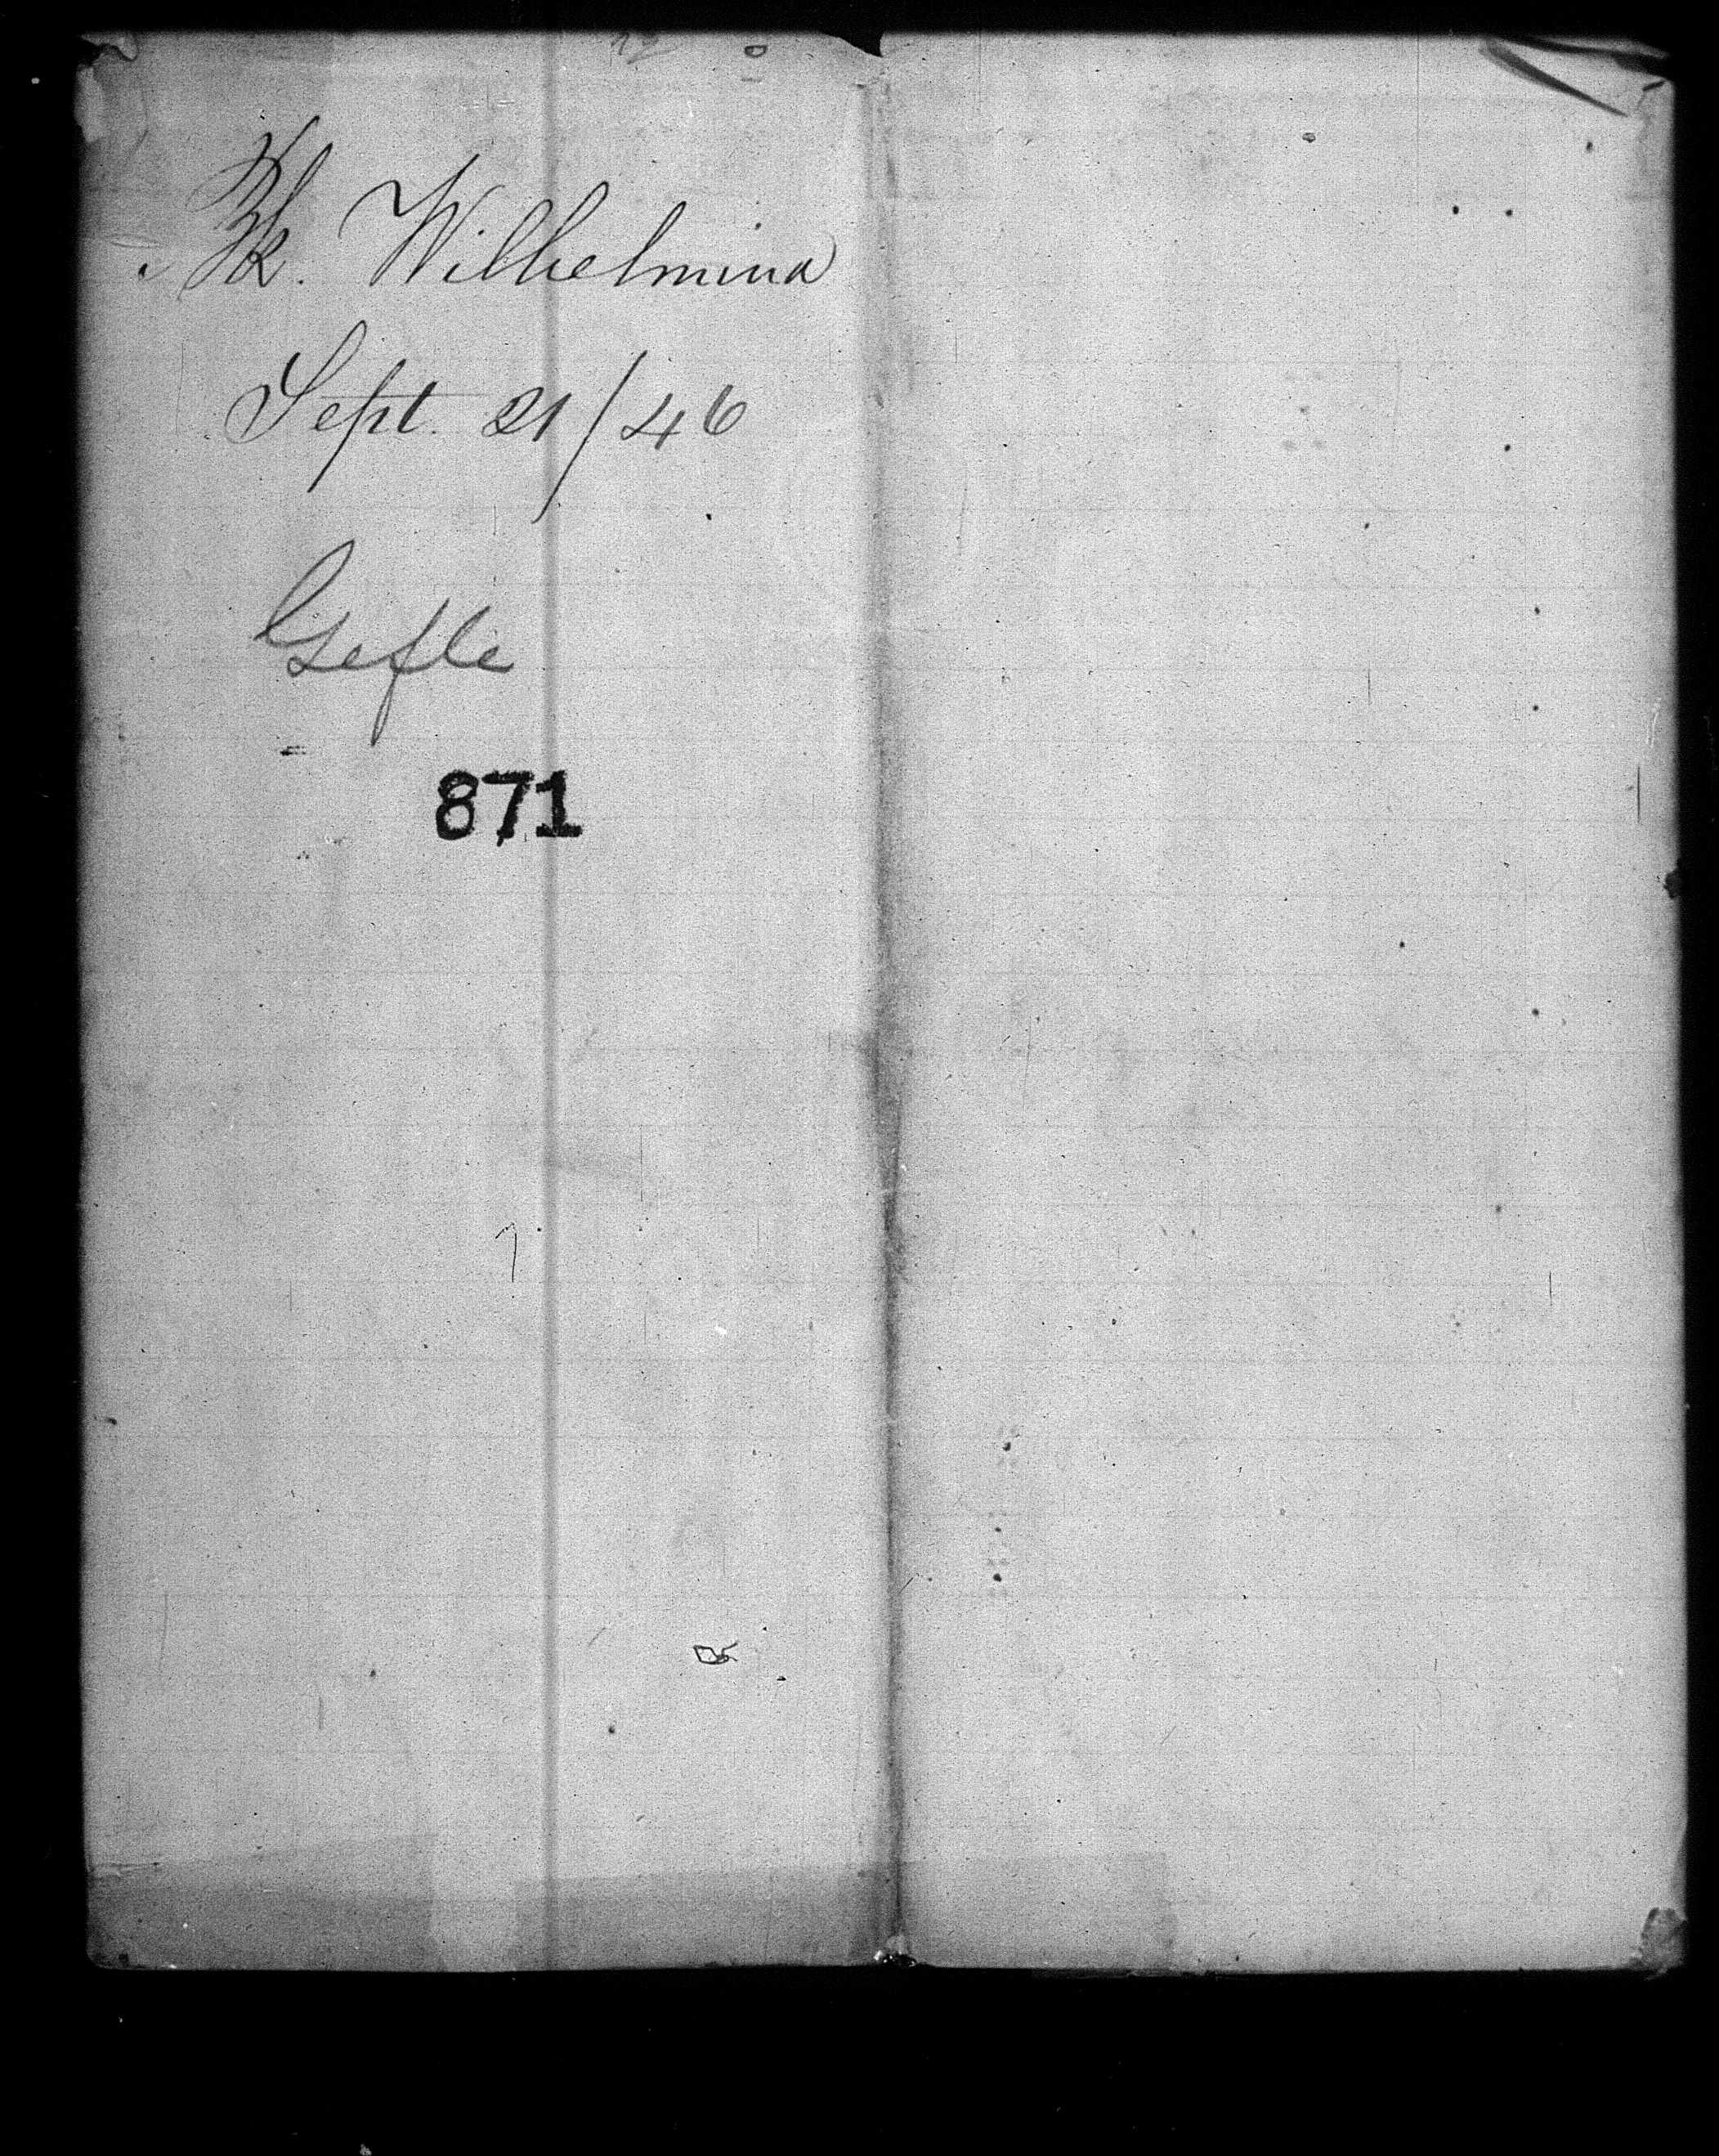 Bk. Wilhelmina
Sept. 21/46
Gefle
871